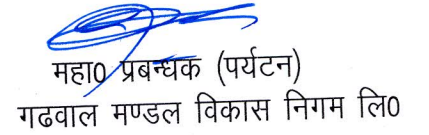 महा0 प्रबन्धक (पर्यटन)
गढवाल मण्डल विकास निगम लि0